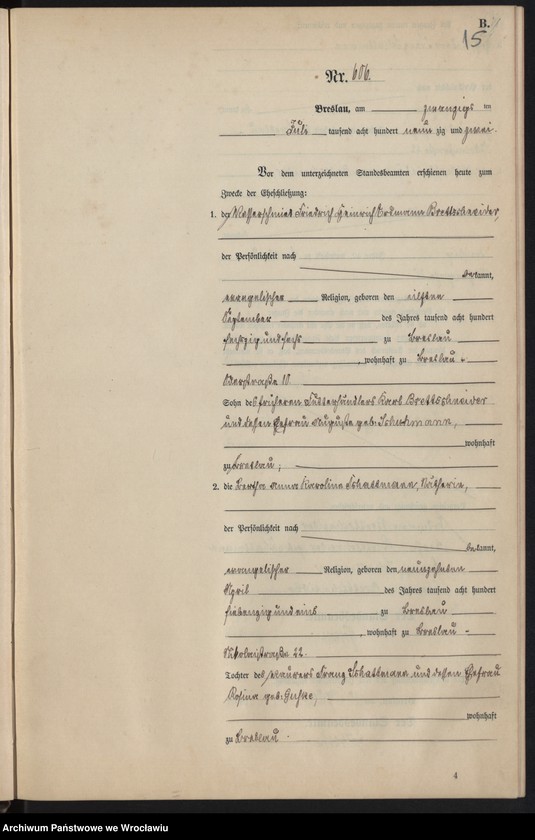 B.
15
Nr. 606.
Breslau, am zwanzigsten
Juli tausend acht hundert neunzig und zwei.
Vor dem unterzeichneten Standesbeamten erschienen heute zum
Zwecke der Eheschließung:
1. der Messerschmied Friedrich Heinrich Erdmann Brettschneider,
der Persönlichkeit nach
bekannt,
evangelischer Religion, geboren den elften
September des Jahres tausend acht hundert
sechszig und sechs zu Breslau
, wohnhaft zu Breslau,
Oderstraße 10
Sohn des früheren Karl Brettschneider
und dessen Ehefrau Auguste geb.
wohnhaft
zu Breslau;
2. die Bertha Anna Karoline Schattmann, Nätherin,
der Persönlichkeit nach
bekannt,
evangelischer Religion, geboren den neunzehnten
April des Jahres tausend acht hundert
siebenzig und eins zu Breslau
, wohnhaft zu Breslau -
Nikolaistraße 22
Tochter des Maurers Franz Schattmann und dessen Ehefrau
Rosina geb.
wohnhaft
zu Breslau -
4
Archiwum Państwowe we Wrocławiu